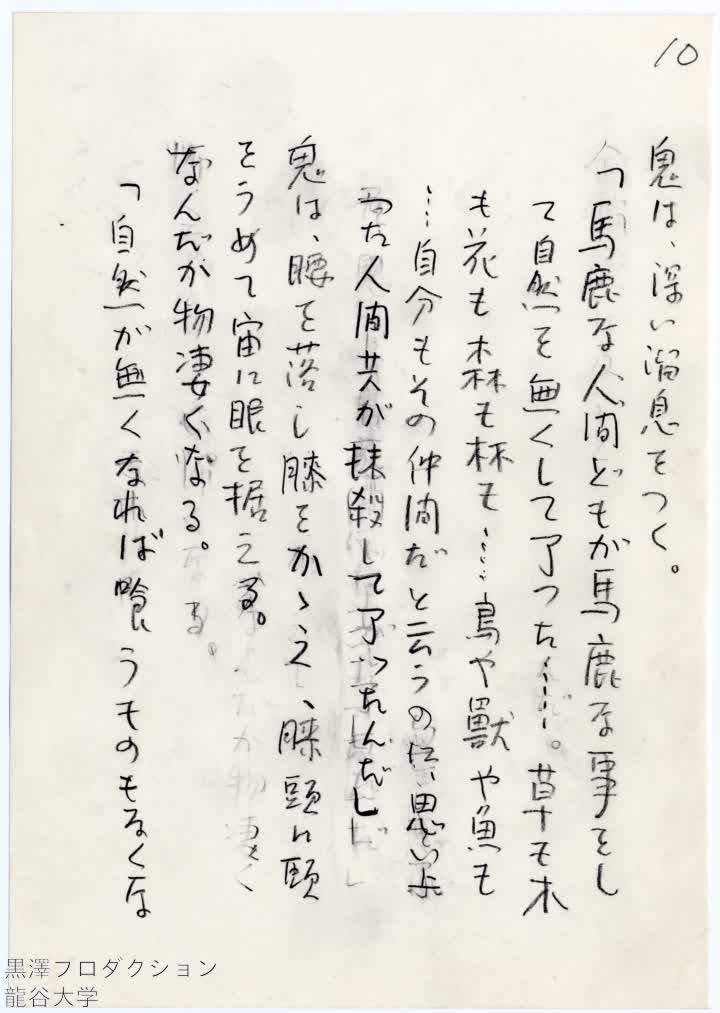 10
鬼は、深い溜息をつく。
「馬鹿な人間どもが馬鹿な事をし
て自然を無くして了った……。草も木
も花も森も林も……鳥や獸や魚も
……自分もその仲間だと云うのに、思い上
った人間共が抹殺して了ったんだ」
鬼は、腰を落し膝をかゝえ、膝頭に頤
をうめて宙に眼を据える。
なんだか物凄くなる。
「自然が無くなれば喰うものもなくな
黒澤プロダクション
龍谷大学